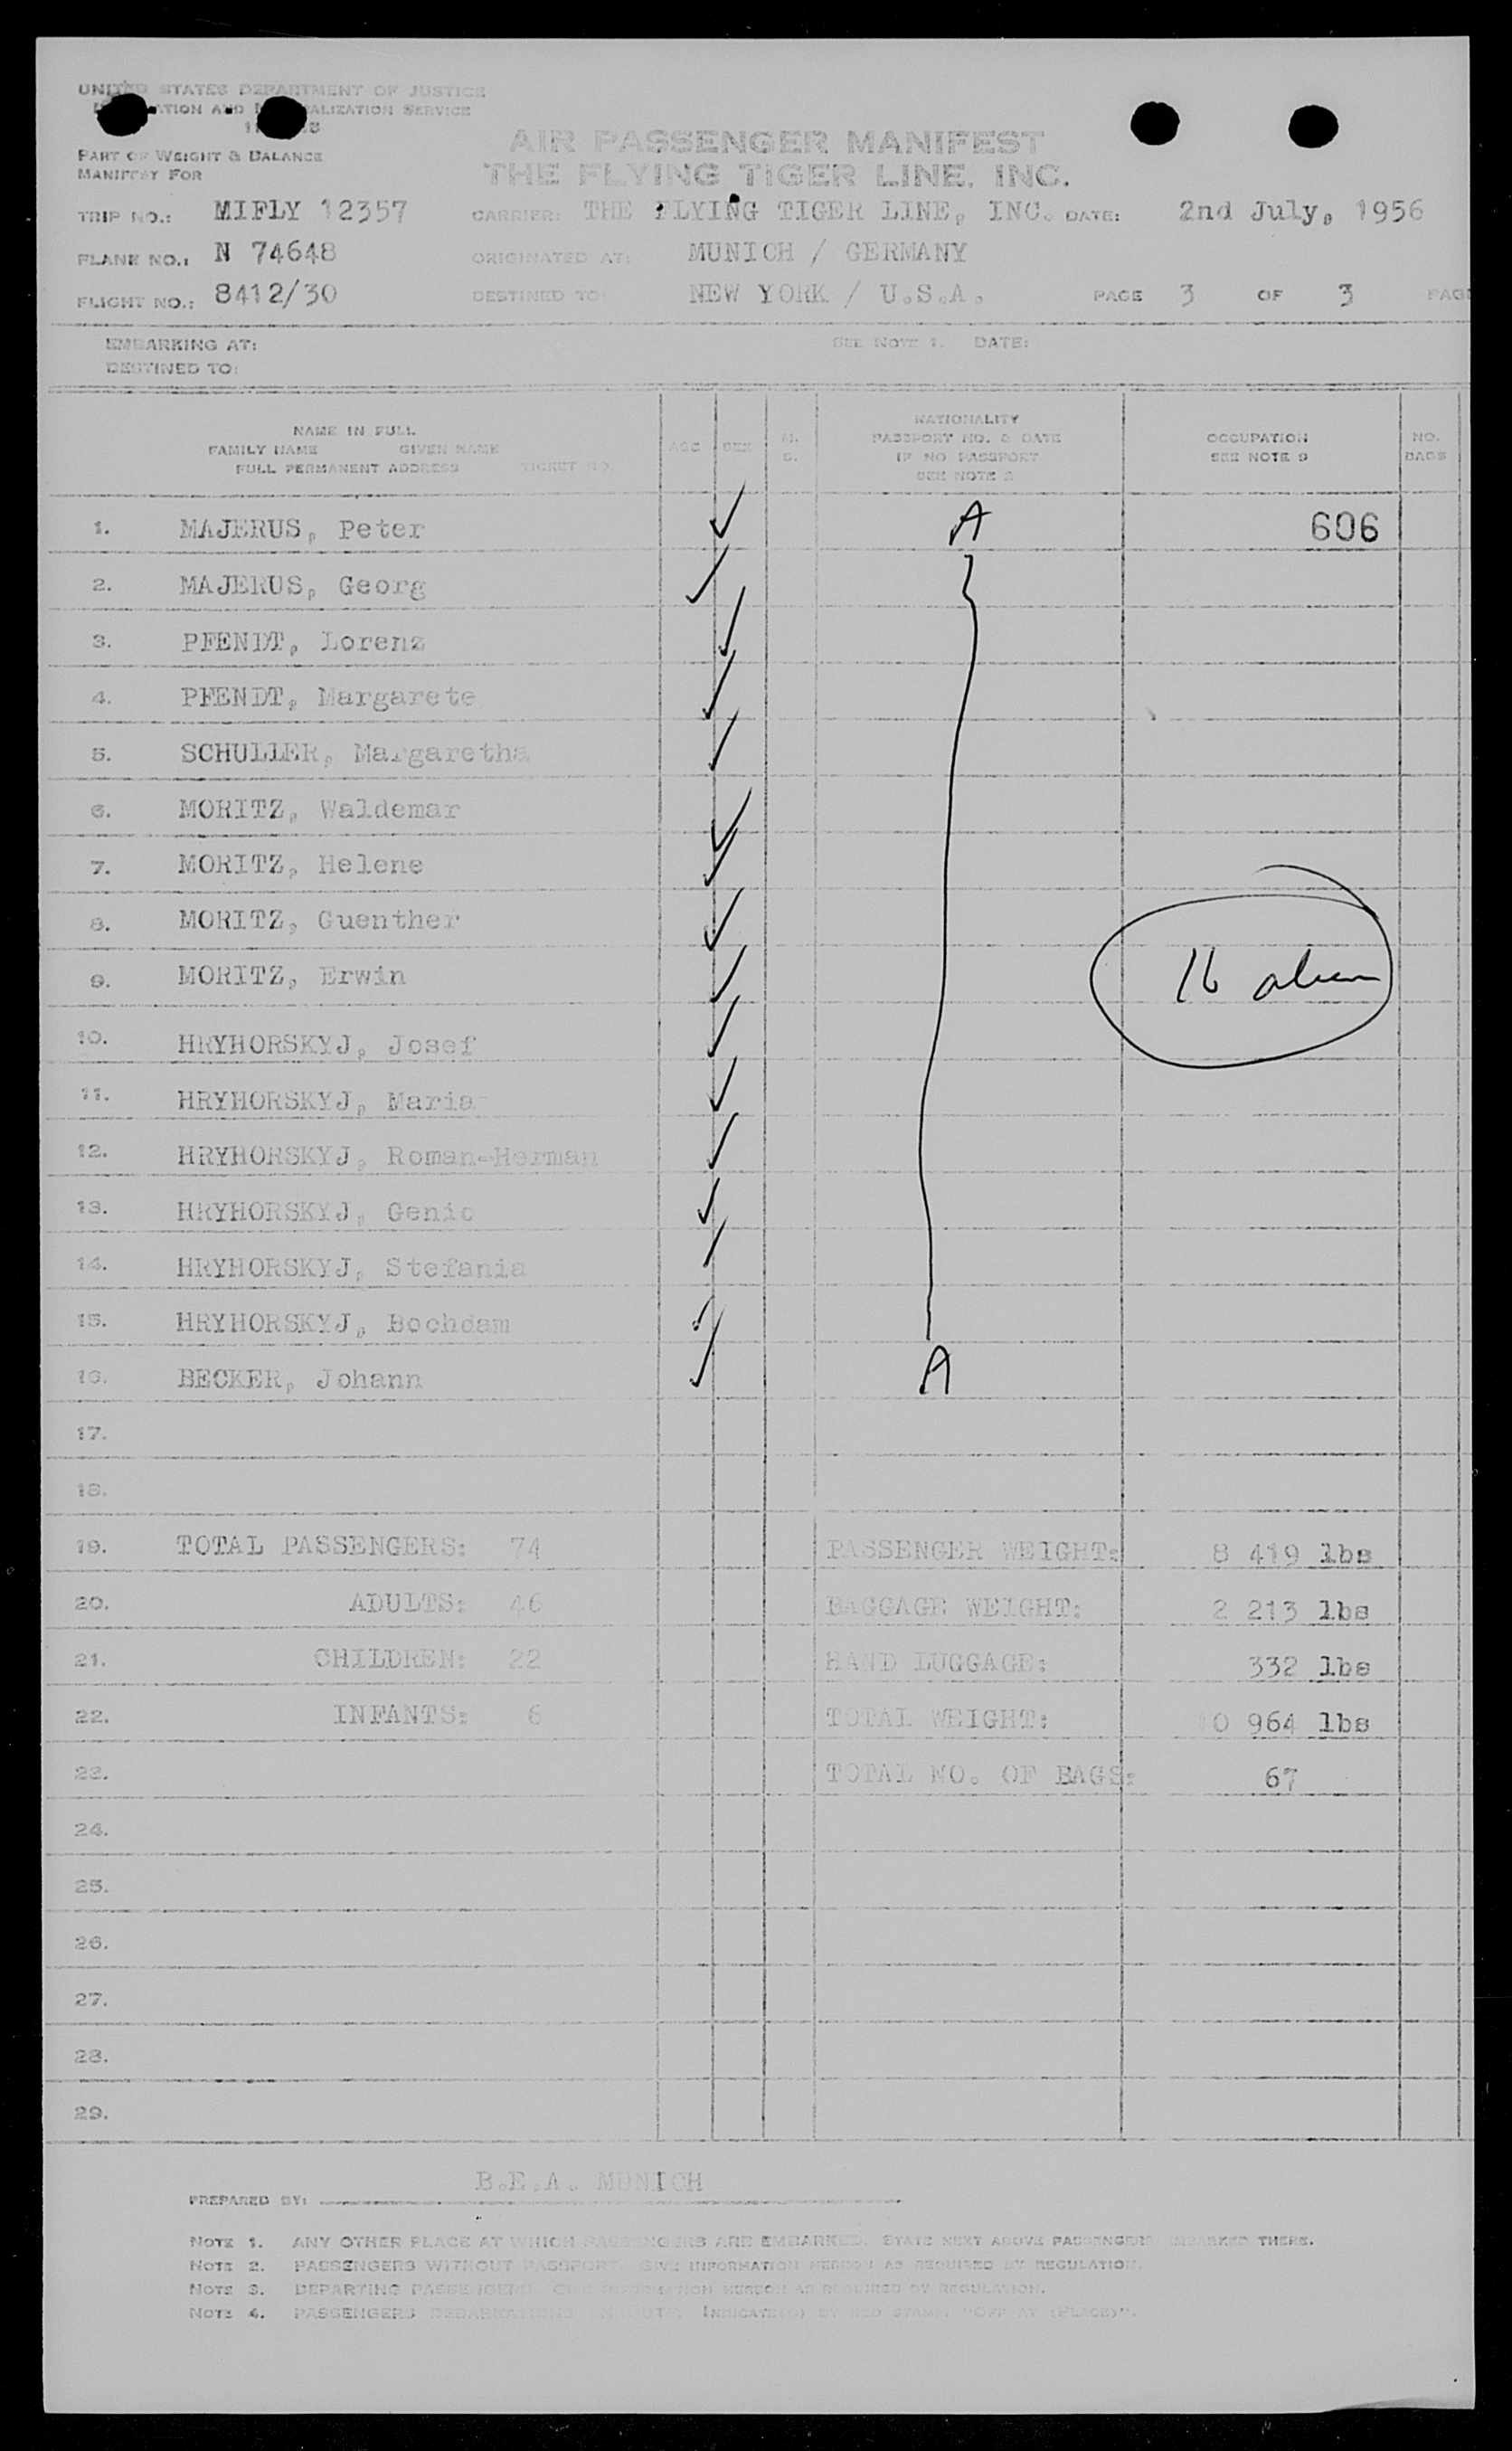 UNITED STATES DEPARTMENT OF JUSTICE
AND NATURALIZATION SERVICE
PART OF WEIGHT & BALANCE
MANIFEST FOR
AIR PASSENGER MANIFEST
THE FLYING TIGER LINE, INC.
TRIP NO.: MIFLY 12357 CARRIER: THE FLYING TIGER LINE, INC. DATE: 2nd July, 1956
PLANE NO.: N 74648 ORIGINATED AT: MUNICH / GERMANY
FLIGHT NO.: 8412/30 DESTINED TO: NEW YORK / U.S.A. PAGE 3 OF 3 PAGE
EMBARKING AT: SEE NOTE 1. DATE:
DESTINED TO:
NAME IN FULL
FAMILY NAME GIVEN NAME
FULL PERMANENT ADDRESS TICKET NO.
AGE SEX M. S.
NATIONALITY
PASSPORT NO. & DATE
IF NO PASSPORT
SEE NOTE 2
OCCUPATION
SEE NOTE 3
NO.
BAGS
1. MAJERUS, Peter A 606
2. MAJERUS, Georg
3. PFENDT, Lorenz
4. PFENDT, Margarete
5. SCHULLER, Margaretha
6. MORITZ, Waldemar
7. MORITZ, Helene
8. MORITZ, Guenther
9. MORITZ, Erwin 16 alien
10. HRYHORSKYJ, Josef
11. HRYHORSKYJ, Maria
12. HRYHORSKYJ, Roman-Herman
13. HRYHORSKYJ, Genic
14. HRYHORSKYJ, Stefania
15. HRYHORSKYJ, Bochdam
16. BECKER, Johann A
17.
18.
19. TOTAL PASSENGERS: 74 PASSENGER WEIGHT: 8 419 lbs
20. ADULTS: 46 BAGGAGE WEIGHT: 2 213 lbs
21. CHILDREN: 22 HAND LUGGAGE: 332 lbs
22. INFANTS: 6 TOTAL WEIGHT: 10 964 lbs
23. TOTAL NO. OF BAGS: 67
24.
25.
26.
27.
28.
29.
PREPARED BY: B.E.A. MUNICH
NOTE 1. ANY OTHER PLACE AT WHICH PASSENGERS ARE EMBARKED, STATE NEXT ABOVE PASSENGERS EMBARKED THERE.
NOTE 2. PASSENGERS WITHOUT PASSPORT, GIVE INFORMATION HEREON AS REQUIRED BY REGULATION.
NOTE 3. DEPARTING PASSENGERS, GIVE INFORMATION HEREON AS REQUIRED BY REGULATION.
NOTE 4. PASSENGERS DEBARKATIONS EN ROUTE, INDICATED BY RED STAMP "OFF AT (PLACE)".